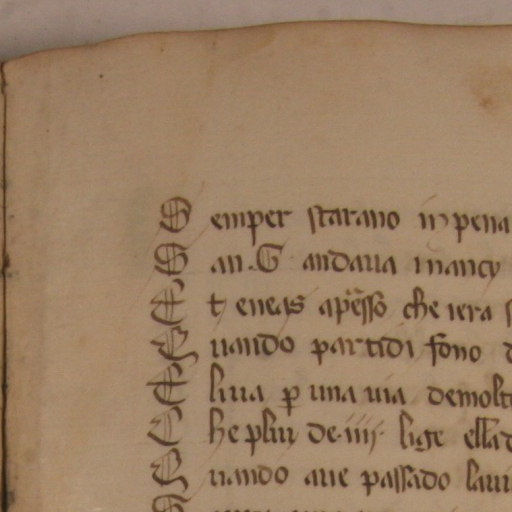 S emper starano in pena
S an. G andaua inancy
E t eneas apresso che iera
Q uando partidi fono d
E lluа p una uia demolt
C he pluy de .iiij. lige ella
Q uando aue passado lau